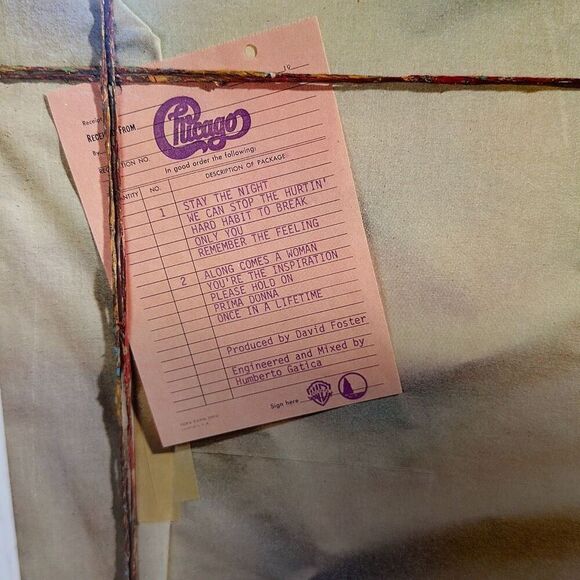 19
RECEIVED FROM
Chicago
By
In good order the following:
NO.
DESCRIPTION OF PACKAGE
1 STAY THE NIGHT
WE CAN STOP THE HURTIN'
HARD HABIT TO BREAK
ONLY YOU
REMEMBER THE FEELING
2 ALONG COMES A WOMAN
YOU'RE THE INSPIRATION
PLEASE HOLD ON
PRIMA DONNA
ONCE IN A LIFETIME
Produced by David Foster
Engineered and Mixed by
Humberto Gatica
Sign here